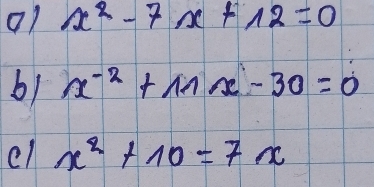 a) x² - 7x + 12 = 0
b) x⁻² + 11x - 30 = 0
c) x² + 10 = 7x